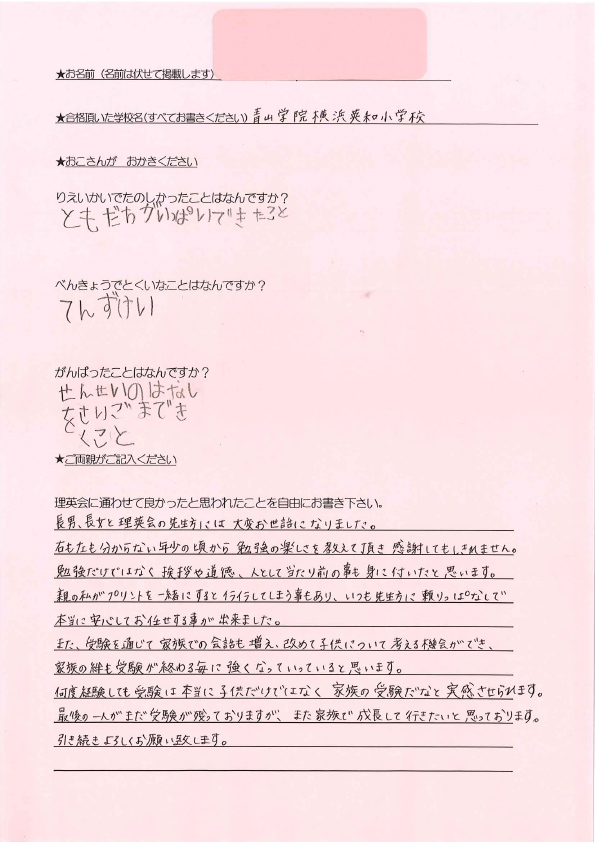 ★お名前（名前は伏せて掲載します）
★合格頂いた学校名（すべてお書きください） 青山学院横浜英和小学校
★おこさんが　おかきください
りえいかいでたのしかったことはなんですか？
ともだちがいぱいできたこと
べんきょうでとくいなことはなんですか？
てんずけい
がんばったことはなんですか？
せんせいのはなし
をさいごまでき
くこと
★ご両親がご記入ください
理英会に通わせて良かったと思われたことを自由にお書き下さい。
長男、長女と理英会の先生方には大変お世話になりました。
右も左も分からない年少の頃から勉強の楽しさを教えて頂き感謝してもしきれません。
勉強だけではなく挨拶や道徳、人として当たり前の事も身に付いたと思います。
親の私がプリントを一緒にするとイライラしてしまう事もあり、いつも先生方に頼りっぱなしで
本当に安心してお任せする事が出来ました。
また、受験を通じて家族での会話も増え、改めて子供について考える機会ができ、
家族の絆も受験が終わる毎に強くなっていっていると思います。
何度経験しても受験は本当に子供だけではなく家族の受験だなと実感させられます。
最後の一人がまだ受験が残っておりますが、また家族で成長して行きたいと思っております。
引き続きよろしくお願い致します。